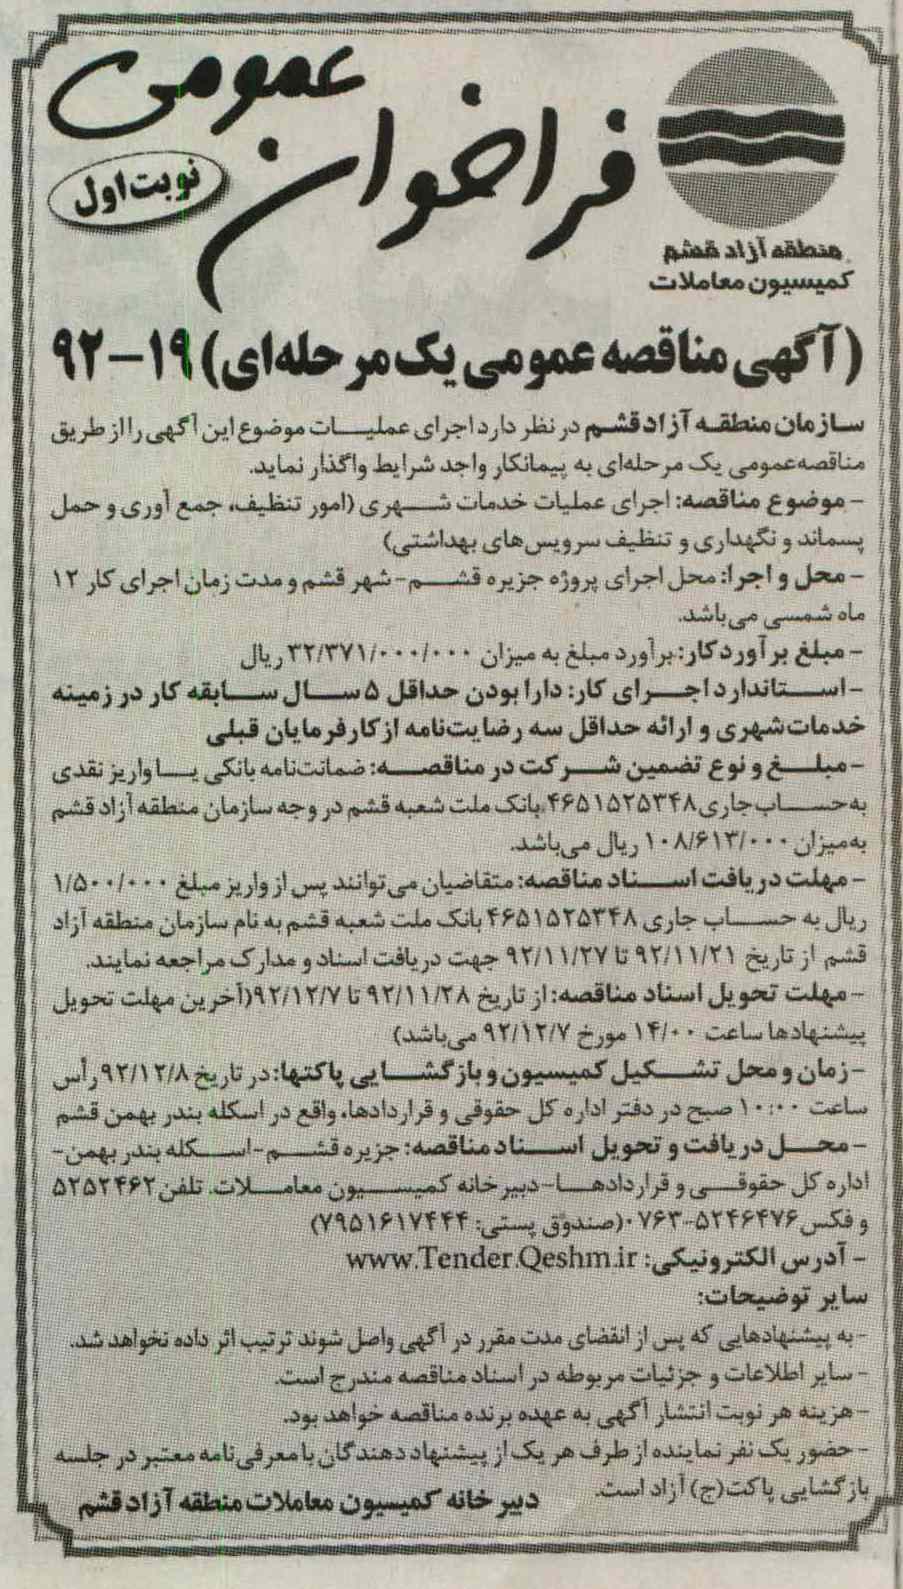 فراخوان عمومی
نوبت اول
منطقه آزاد قشم
کمیسیون معاملات
(آگهی مناقصه عمومی یک مرحله‌ای) ۱۹-۹۲
سازمان منطقه آزاد قشم در نظر دارد اجرای عملیات موضوع این آگهی را از طریق
مناقصه عمومی یک مرحله‌ای به پیمانکار واجد شرایط واگذار نماید.
- موضوع مناقصه: اجرای عملیات خدمات شهری (امور تنظیف، جمع آوری و حمل
پسماند و نگهداری و تنظیف سرویس‌های بهداشتی)
- محل و اجرا: محل اجرای پروژه جزیره قشم-شهر قشم و مدت زمان اجرای کار ۱۲
ماه شمسی می‌باشد.
- مبلغ برآورد کار: برآورد مبلغ به میزان ۳۲/۳۷۱/۰۰۰/۰۰۰ ریال
- استاندارد اجرای کار: دارا بودن حداقل ۵ سال سابقه کار در زمینه
خدمات شهری و ارائه حداقل سه رضایت‌نامه از کارفرمایان قبلی
- مبلغ و نوع تضمین شرکت در مناقصه: ضمانت‌نامه بانکی یا واریز نقدی
به حساب جاری ۴۶۵۱۵۲۵۳۴۸ بانک ملت شعبه قشم در وجه سازمان منطقه آزاد قشم
به میزان ۱۰۸/۶۱۳/۰۰۰ ریال می‌باشد.
- مهلت دریافت اسناد مناقصه: متقاضیان می‌توانند پس از واریز مبلغ ۱/۵۰۰/۰۰۰
ریال به حساب جاری ۴۶۵۱۵۲۵۳۴۸ بانک ملت شعبه قشم به نام سازمان منطقه آزاد
قشم از تاریخ ۹۲/۱۱/۲۱ تا ۹۲/۱۱/۲۷ جهت دریافت اسناد و مدارک مراجعه نمایند.
- مهلت تحویل اسناد مناقصه: از تاریخ ۹۲/۱۱/۲۸ تا ۹۲/۱۲/۷ (آخرین مهلت تحویل
پیشنهادها ساعت ۱۴/۰۰ مورخ ۹۲/۱۲/۷ می‌باشد)
- زمان و محل تشکیل کمیسیون و بازگشایی پاکتها: در تاریخ ۹۲/۱۲/۸ رأس
ساعت ۱۰:۰۰ صبح در دفتر اداره کل حقوقی و قراردادها، واقع در اسکله بندر بهمن قشم
- محل دریافت و تحویل اسناد مناقصه: جزیره قشم-اسکله بندر بهمن-
اداره کل حقوقی و قراردادها-دبیرخانه کمیسیون معاملات. تلفن ۵۲۵۲۴۶۲
و فکس ۵۲۴۶۴۷۶-۰۷۶۳ (صندوق پستی: ۷۹۵۱۶۱۷۴۴۴)
- آدرس الکترونیکی: www.Tender.Qeshm.ir
سایر توضیحات:
- به پیشنهادهایی که پس از انقضای مدت مقرر در آگهی واصل شوند ترتیب اثر داده نخواهد شد.
- سایر اطلاعات و جزئیات مربوطه در اسناد مناقصه مندرج است.
- هزینه هر نوبت انتشار آگهی به عهده برنده مناقصه خواهد بود.
- حضور یک نفر نماینده از طرف هر یک از پیشنهاد دهندگان با معرفی‌نامه معتبر در جلسه
بازگشایی پاکت (ج) آزاد است.
دبیرخانه کمیسیون معاملات منطقه آزاد قشم